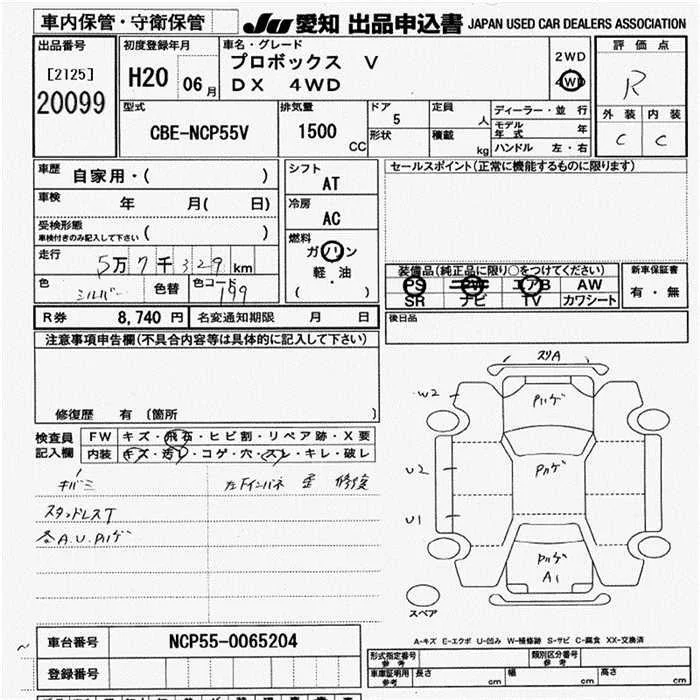 車内保管・守衛保管
JU 愛知 出品申込書 JAPAN USED CAR DEALERS ASSOCIATION
出品番号
[2125]
20099
初度登録年月
H20 06月
車名・グレード
プロボックス V
DX 4WD
2WD
4WD
評価点
R
外装 内装
C C
型式
CBE-NCP55V
排気量
1500
CC
ドア
5
形状
定員
人
積載
kg
ディーラー・並行
モデル年式 年
ハンドル 左・右
車歴 自家用・( )
車検 年 月( 日)
受検形態
車検付きのみ記入して下さい ( )
走行 5万7千329km
色 シルバー 色替 色コード 199
シフト
AT
冷房
AC
燃料
ガソリン
軽・油
( )
セールスポイント(正常に機能するものに限ります)
装備品(純正品に限り○をつけてください)
PS PW エアB AW
SR ナビ TV カワシート
新車保証書
有・無
後日品
R券 8,740 円 名変通知期限 月 日
注意事項申告欄(不具合内容等は具体的に記入して下さい)
修復歴 有 〔箇所 〕
検査員記入欄
FW キズ・飛石・ヒビ割・リペア跡・X要
内装 キズ・汚れ・コゲ・穴・スレ・キレ・破レ
キバミ
左Fインパネ 歪 修復
スタッドレスT
各A.U.Pハゲ
スリA
W2
Pハゲ
U2
Pハゲ
U1
Pハゲ
A1
スペア
A-キズ E-エクボ U-凹み W-補修跡 S-サビ C-腐食 XX-交換済
車台番号 NCP55-0065204
登録番号
形式指定番号 参考
類別区分番号 参考
車庫証明用 参考 長さ cm 幅 cm 高さ cm